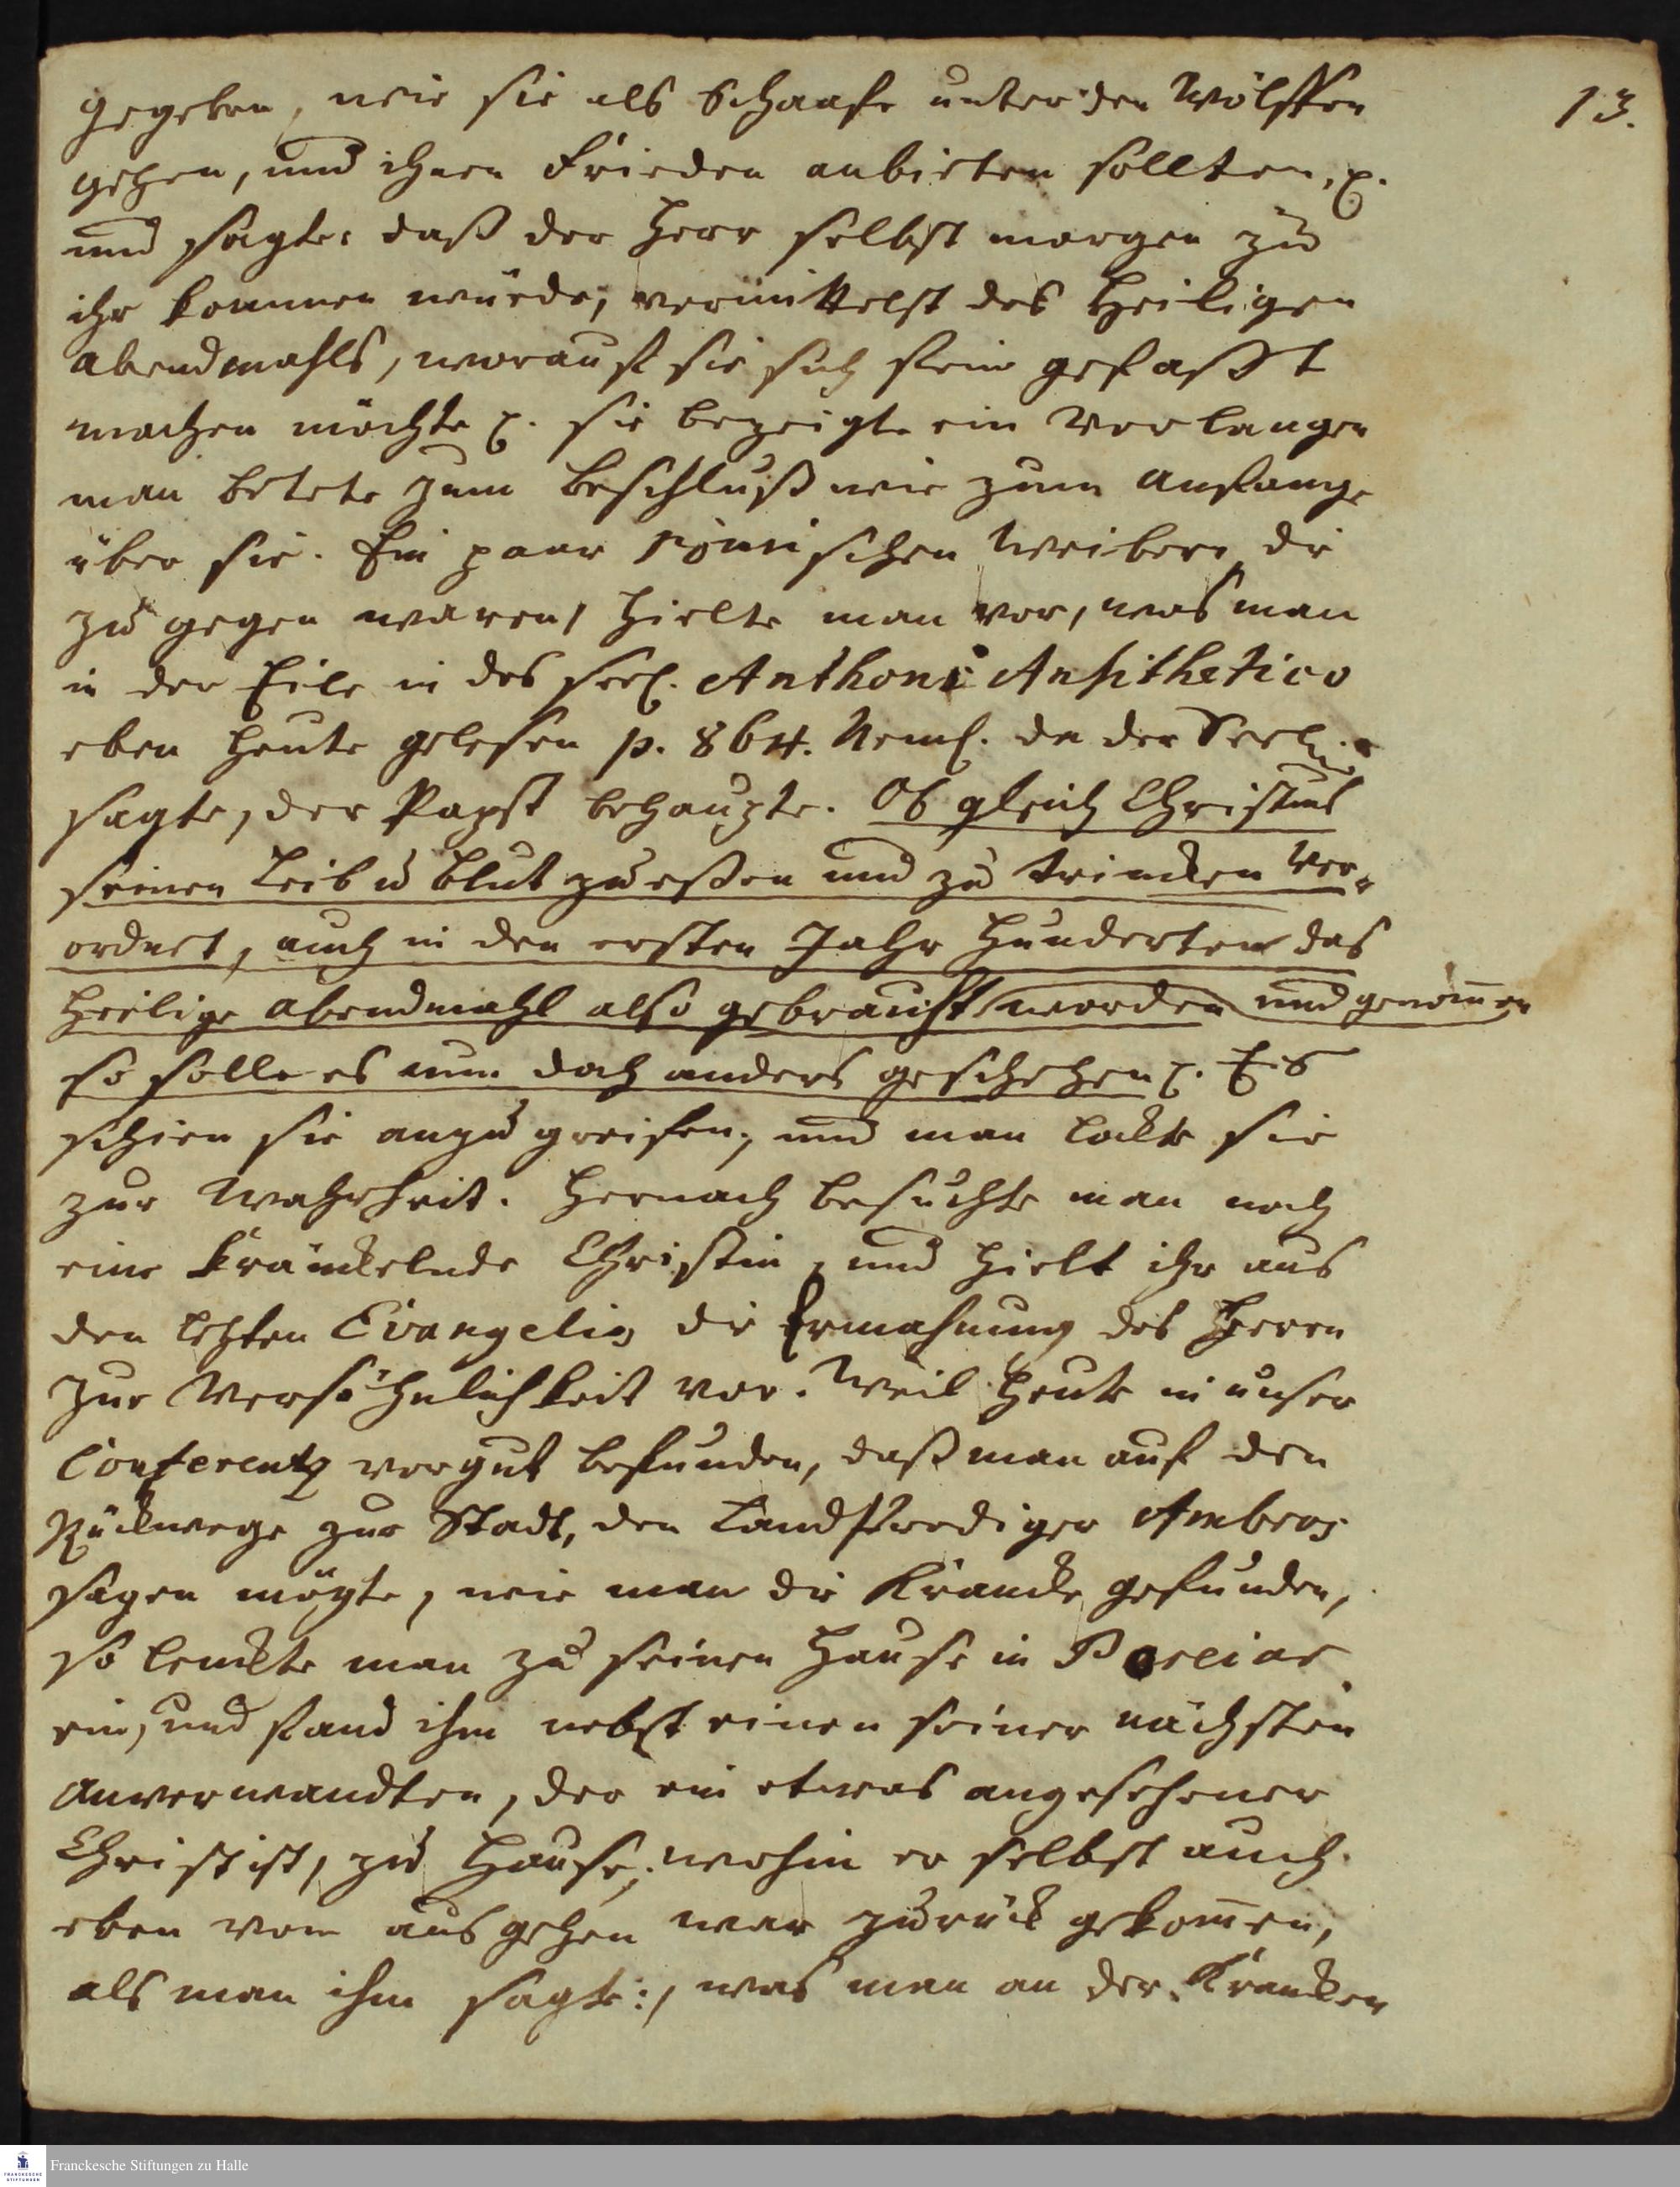 13.
gegeben, wie sie als Schaafe unter den Wölffen
gehen, und ihnen Frieden anbieten sollten, p.
und sagte: daß der Herr selbst morgen zu
ihr kommen würde, vermittelst des Heiligen
Abendmahls, worauf sie sich fein gefasst
machen möchte p. sie bezeigte ein Verlangen
man betete zum Beschluß wie zum Anfange
über sie. Ein paar römischen Weibern die
zu gegen waren, hielte man vor, was man
in der Eile in des seel. Anthoni Antithetico
eben heute gelesen p. 864. Neml. da der Seelige
sagte, der Papst behaupte. Ob gleich Christus
seinen Leib u Blut zu eßen und zu trincken ver-
ordnet, auch in den ersten Jahr Hunderten das
Heilige Abendmahl also gebraucht worden und genom̅en
so solle es nun doch anders geschehen p. Es
schien sie anzu greifen, und man lockte sie
zur Wahrheit. Hernach besuchte man noch
eine kränckelnde Christin, und hielt ihr aus
den letzten Evangelio die Ermahnung des Herrn
zur Versöhnlichkeit vor. Weil heute in unser
Conferentz vor gut befunden, daß man auf den
Rückwege zur Stadt, den Landprediger Ambros
sagen mögte, wie man die Krancke gefunden,
so lenckte man zu seinen Hause in Poreiar
ein, und fand ihn nebst einen seiner nächsten
Anverwandten, der ein etwas angesehener
Christ ist, zu Hause, wohin er selbst auch
eben vom ausgehen war zurück gekom̅en,
als man ihm sagte:, was man an der Krancken
Franckesche Stiftungen zu Halle